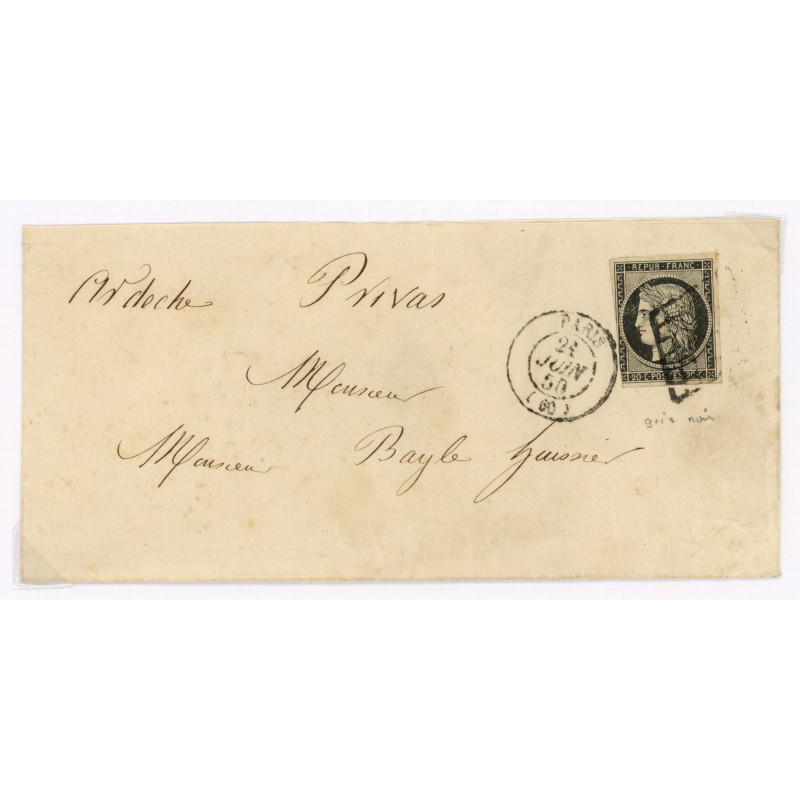 Ardeche Privas
REPUB·FRANC·
20·C·POSTES·20·C
PARIS
24
JUIN
50
(60)
Monsieur
Monsieur Bayle huissier
gris noir